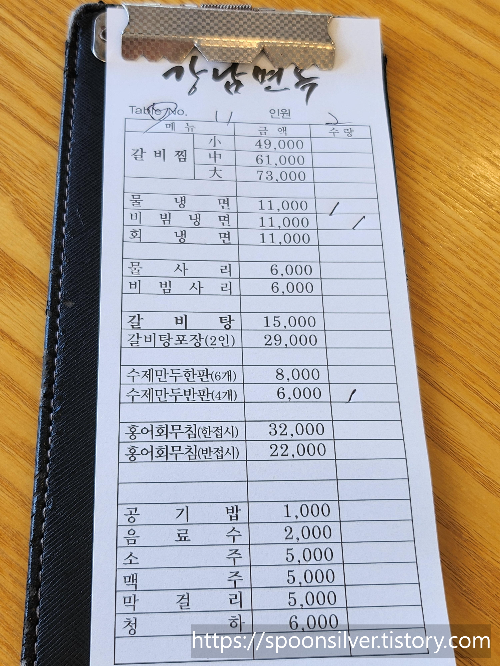 강남면옥
Table No. 11 인원 2
메뉴 금액 수량
갈비찜 小 49,000
中 61,000
大 73,000
물냉면 11,000 /
비빔냉면 11,000 /
회냉면 11,000
물사리 6,000
비빔사리 6,000
갈비탕 15,000
갈비탕포장(2인) 29,000
수제만두한판(6개) 8,000
수제만두반판(4개) 6,000 /
홍어회무침(한접시) 32,000
홍어회무침(반접시) 22,000
공기밥 1,000
음료수 2,000
소주 5,000
맥주 5,000
막걸리 5,000
청하 6,000
https://spoonsilver.tistory.com